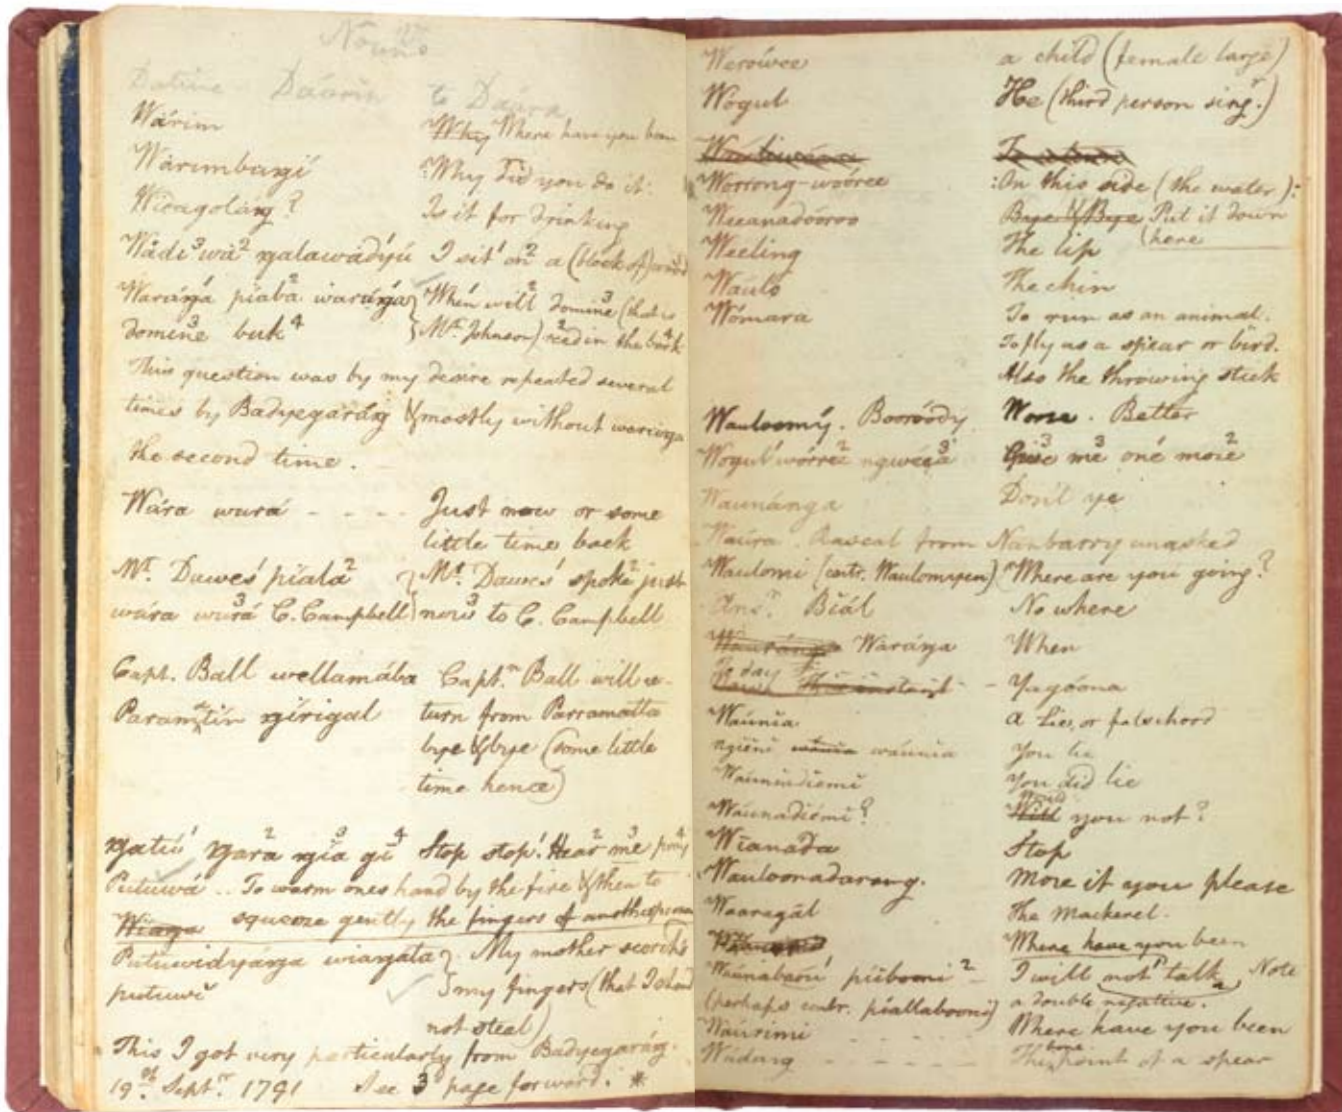 Nouns
Dative Daárin to Daára
Wárim Why Where have you been
Wárimbargi :Why did you do it:
Is it for drinking
I sit¹ on² a (block of) wood³
Warárŋa píaba² warárŋa When¹ will² domine³ (that is
domine³ buk⁴ Mr. Johnson) ²read in the book⁴
This question was by my desire repeated several
times by Badyegaráŋ & mostly without warárŋa
the second time.
Wára wurá - - - - Just now or some
little time back
Mr. Dawes¹ píala² Mr. Dawes¹ spoke² just
wára wurá³ C. Campbell now³ to C. Campbell
Capt. Ball wellamába Captn. Ball will re-
Paramatin ŋírigal turn from Parramatta
bye & bye (some little
time hence)
ŋatú¹ ŋara² ŋía³ gī⁴ Stop stop¹! Hear² me³ pray⁴
Putuwá .. To warm ones hand by the fire & then to
Wiaga squeeze gently the fingers of another person
Putuwidyáŋa wiaŋáta My mother scorch'd
putuwí my fingers (that I should
not steal)
This I got very particularly from Badyegaráŋ.
19th. Septr. 1791 See 3d page forward. *
Werówee a child (female large)
Wogul He (third person singr.)
Worrong-woóree :On this side (the water):
Weeanadóoroo Bye & Bye Put it down
here
Weeling The lip
Wauló The chin
Wómara To run as an animal.
To fly as a spear or bird.
Also the throwing stick
Wauloomý. Booroody Worse. Better
Wogul¹ wórre² ngweea³ Give³ me³ one¹ more²
Waunánga Don't ye
Waúra. Rascal from Nanbarry unasked
Waulomi (contr. Waulomiyen) Where are you going?
Ansr. Biál No where
Waráŋa When
To day This instant - Yagóona
Waúnia A Lie, or falsehood
ngieni waúnia waúnia You lie
Waúnidiemi You did lie
Waúnadiémi? Will Would you not?
Wíanada Stop
Wauloonadarang. More if you please
Waaragál The Mackerel.
Where have you been
Waúnabaoú píibooni² - I will not¹ talk² Note
(perhaps contr. píallabooni) a double negative.
Waúrími - - - - - Where have you been
Wúdang - - - - - The bone point of a spear